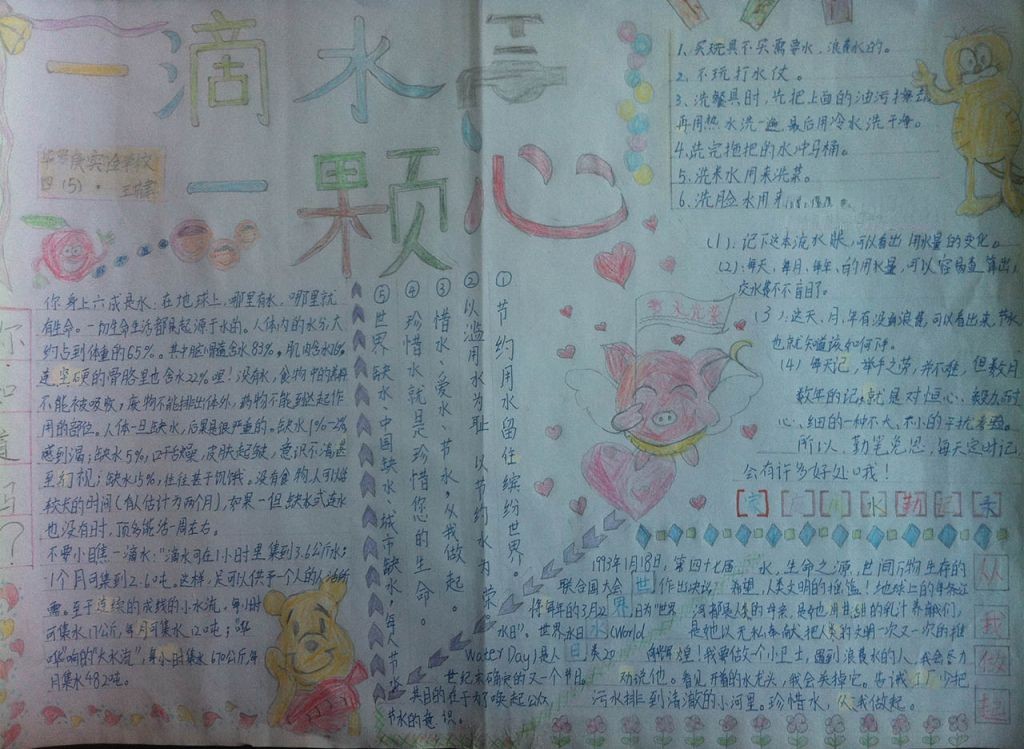 一滴水
一颗心
四(5)
你知道吗?
你身上六成是水:在地球上,哪里有水,哪里就
有生命。一切生命生活都是起源于水的。人体内的水分,大
约占到体重的65%。其中脑髓含水83%,肌肉含水76%
连坚硬的骨胳里也含水22%哩!没有水,食物中的养料
不能被吸收,废物不能排出体外,药物不能到达起作
用的部位。人体一旦缺水,后果是很严重的。缺水1%-2%
感到渴;缺水5%,口干舌燥,皮肤起皱,意识不清,甚
至幻视;缺水15%,往往甚于饥饿。没有食物,人可以活
较长的时间(有人估计为两个月),如果一但缺水
也没有时,顶多能活一周左右。
不要小目焦一滴水:"滴水"可在1小时里集到3.6公斤水;
1个月可集到2.6吨。这样,足可以供予一个人的生活所
需。至于连续的成线的小水流,每小时
可集水17公斤,每月可集水12吨;"哗
哗"响的"大水流",每小时集水670公斤,每
月集水482吨。
①节约用水留住缤纷世界。
②以滥用水为耻 以节约水为荣
③惜水、爱水、节水,从我做起。
④珍惜水就是珍惜您的生命。
⑤世界缺水、中国缺水、城市缺水,
1、买玩具不买需要水、浪费水的。
2、不玩打水仗。
3、洗餐具时,先把上面的油污擦去
再用热水洗一遍,最后用冷水洗干净。
4、洗完拖把的水冲马桶。
5、洗米水用来洗菜。
6、洗脸水用来
(1):记下这本流水账,可以看出用水量的变化。
(2):每天、每月、每年、的用水量,可以容易查算出,
交水费不盲目了。
(3):这天、月、年有没有浪费,可以看出来,节水
也就知道该如何作。
(4)每天记,举手之劳,并不难,但数月
数年的记,就是对恒心、毅力、耐
心、细的一种不大、不小的干扰考验。
所以,勤笔免思,每天定时记
会有许多好处哦!
1993年1月18日,第四十七届
联合国大会作出决议,
将每年的3月22日为"世界
水日"。世界水日(World
Water Day)是人类20
世纪末确定的又一个节日。
其目的在于为了唤起公众
节水的意识。
世界水日
水,生命之源,世间万物生存的
希望,人类文明的摇篮!地球上的每条江
河都是人类的母亲,是她用甘甜的乳汁养育我们,
是她以无私奉献把人类的文明一次又一次的推
向辉煌!我要做个小卫士,遇到浪费水的人,我会尽力
劝说他。看见开着的水龙头,我会关掉它。告诫工厂少把
污水排到清澈的小河里。珍惜水,从我做起。
从我做起